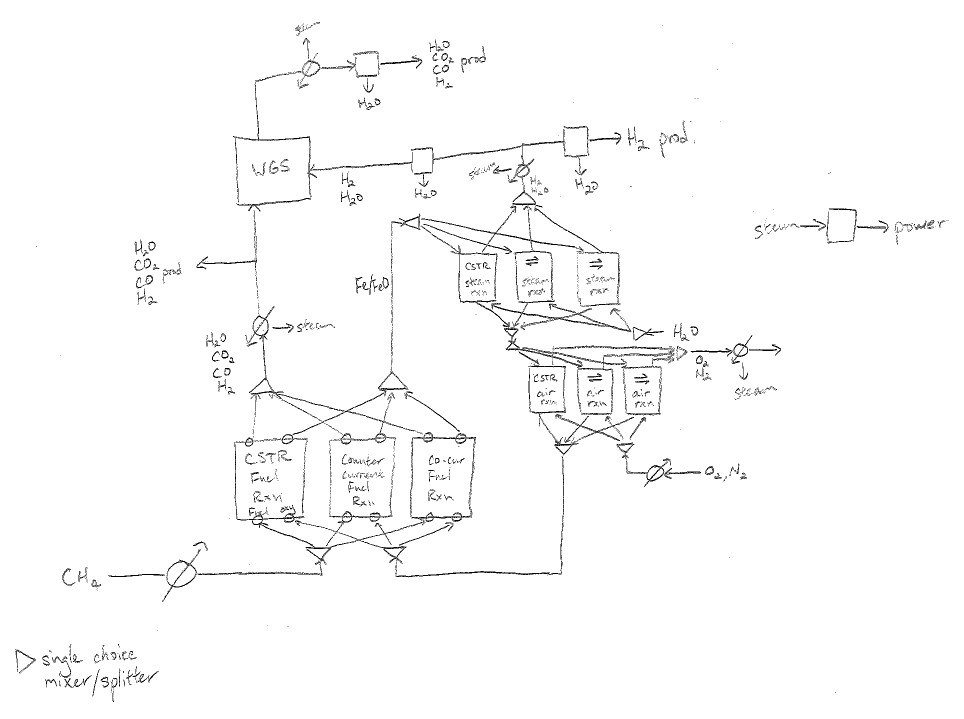 steam
H₂O
CO₂ prod
CO
H₂
H₂O
WGS
H₂
H₂O
H₂O
H₂ prod.
H₂O
steam
H₂
H₂O
steam
power
H₂O
CO₂
CO prod
H₂
Fe/FeO
CSTR
steam
rxn
⇌
steam
rxn
⇉
steam
rxn
H₂O
steam
H₂O
CO₂
CO
H₂
CSTR
air
rxn
⇌
air
rxn
⇉
air
rxn
O₂
N₂
steam
CSTR
Fuel
Rxn
Fuel oxy
Counter
current
Fuel
Rxn
Co-cur
Fuel
Rxn
O₂, N₂
CH₄
single choice
mixer/splitter